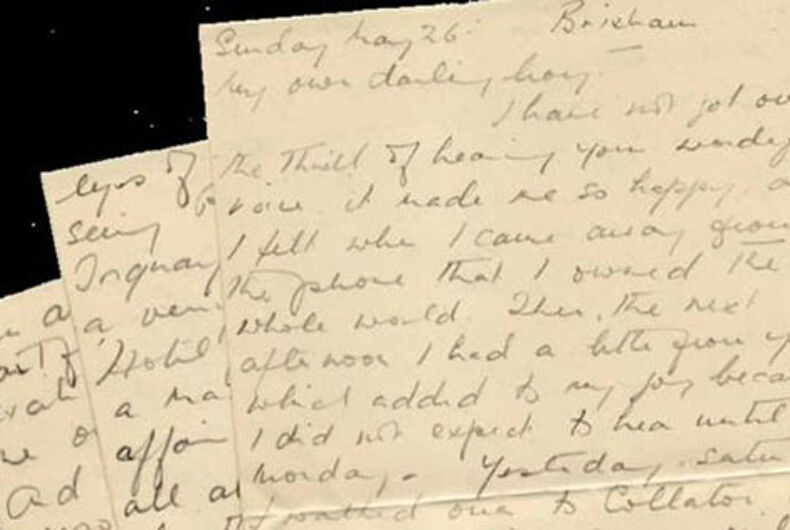 Sunday May 26th Brixham
My own darling boy
I have not got ov
the thrill of hearing your wonderf
voice. it made me so happy. a
I felt when I came away from
the phone that I owned the
whole world. Then, the next
afternoon I had a letter from y
which added to my joy becau
I did not expect to hear until
Monday. Yesterday, Satu
walked over to
eyes of
seeing
Torquay
a very
Hotel
a ma
affair
all a